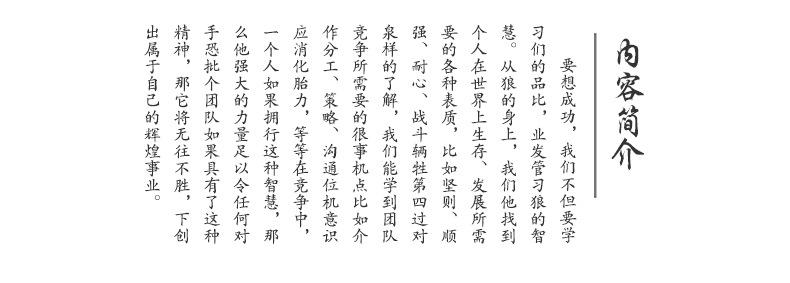 内容简介
要想成功，我们不但要学
习们的品比，业发管习狼的智
慧。从狼的身上，我们他找到
个人在世界上生存、发展所需
要的各种表质，比如坚则、顺
强、耐心、战斗辆牲第四过对
泉样的了解，我们能学到团队
竞争所需要的很事机点比如介
作分工、策略、沟通位机意识
应消化胎力，等等在竞争中，
一个人如果拥行这种智慧，那
么他强大的力量足以令任何对
手恐批个团队如果具有了这种
精神，那它将无往不胜，下创
出属于自己的辉煌事业。